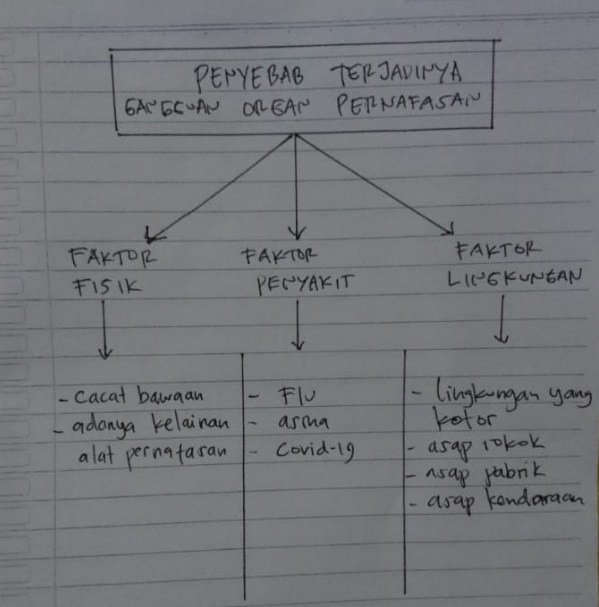 PENYEBAB TERJADINYA
GANGGUAN ORGAN PERNAFASAN
FAKTOR
FISIK
FAKTOR
PENYAKIT
FAKTOR
LINGKUNGAN
- Cacat bawaan
- adanya kelainan
alat pernafasan
- Flu
- asma
- Covid-19
- lingkungan yang
kotor
- asap rokok
- asap pabrik
- asap kendaraan